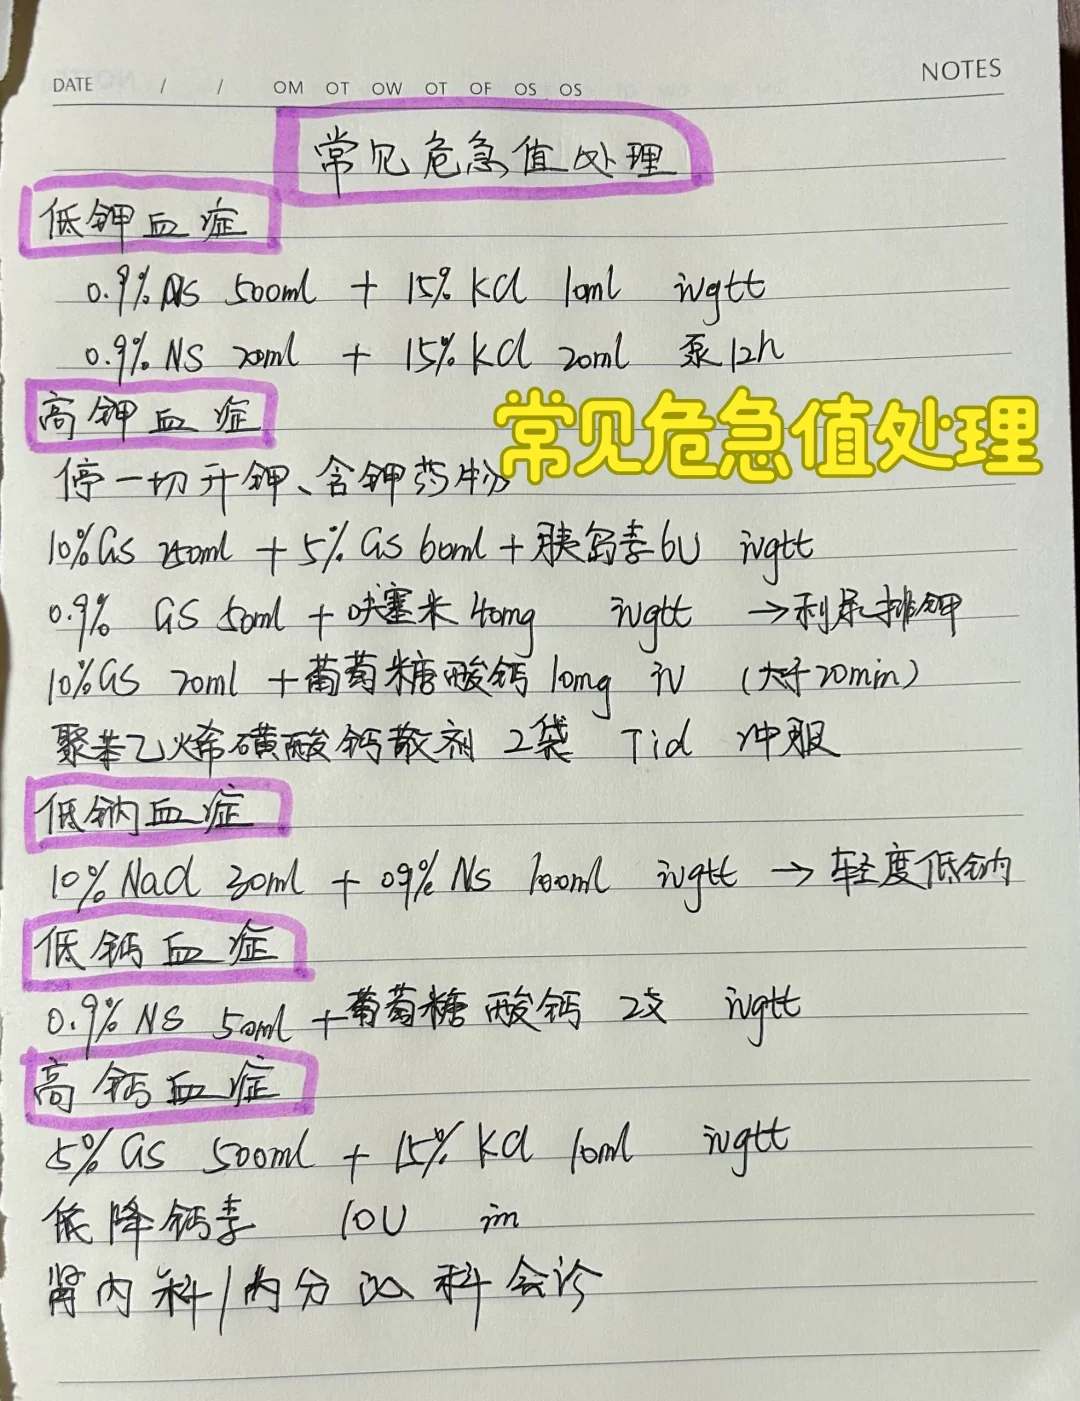 DATE / / OM OT OW OT OF OS OS
NOTES
常见危急值处理
低钾血症
0.9% NS 500ml + 15% KCl 10ml ivgtt
0.9% NS 20ml + 15% KCl 20ml 泵12h
高钾血症
常见危急值处理
停一切升钾、含钾药物
10% GS 250ml + 5% GS 60ml + 胰岛素6U ivgtt
0.9% GS 50ml + 呋塞米 40mg ivgtt → 利尿排钾
10% GS 20ml + 葡萄糖酸钙 10mg iv (大于20min)
聚苯乙烯磺酸钙散剂 2袋 Tid 冲服
低钠血症
10% NaCl 30ml + 0.9% NS 100ml ivgtt → 轻度低钠
低钙血症
0.9% NS 50ml + 葡萄糖酸钙 2支 ivgtt
高钙血症
5% GS 500ml + 15% KCl 10ml ivgtt
降钙素 10U im
肾内科/内分泌科会诊